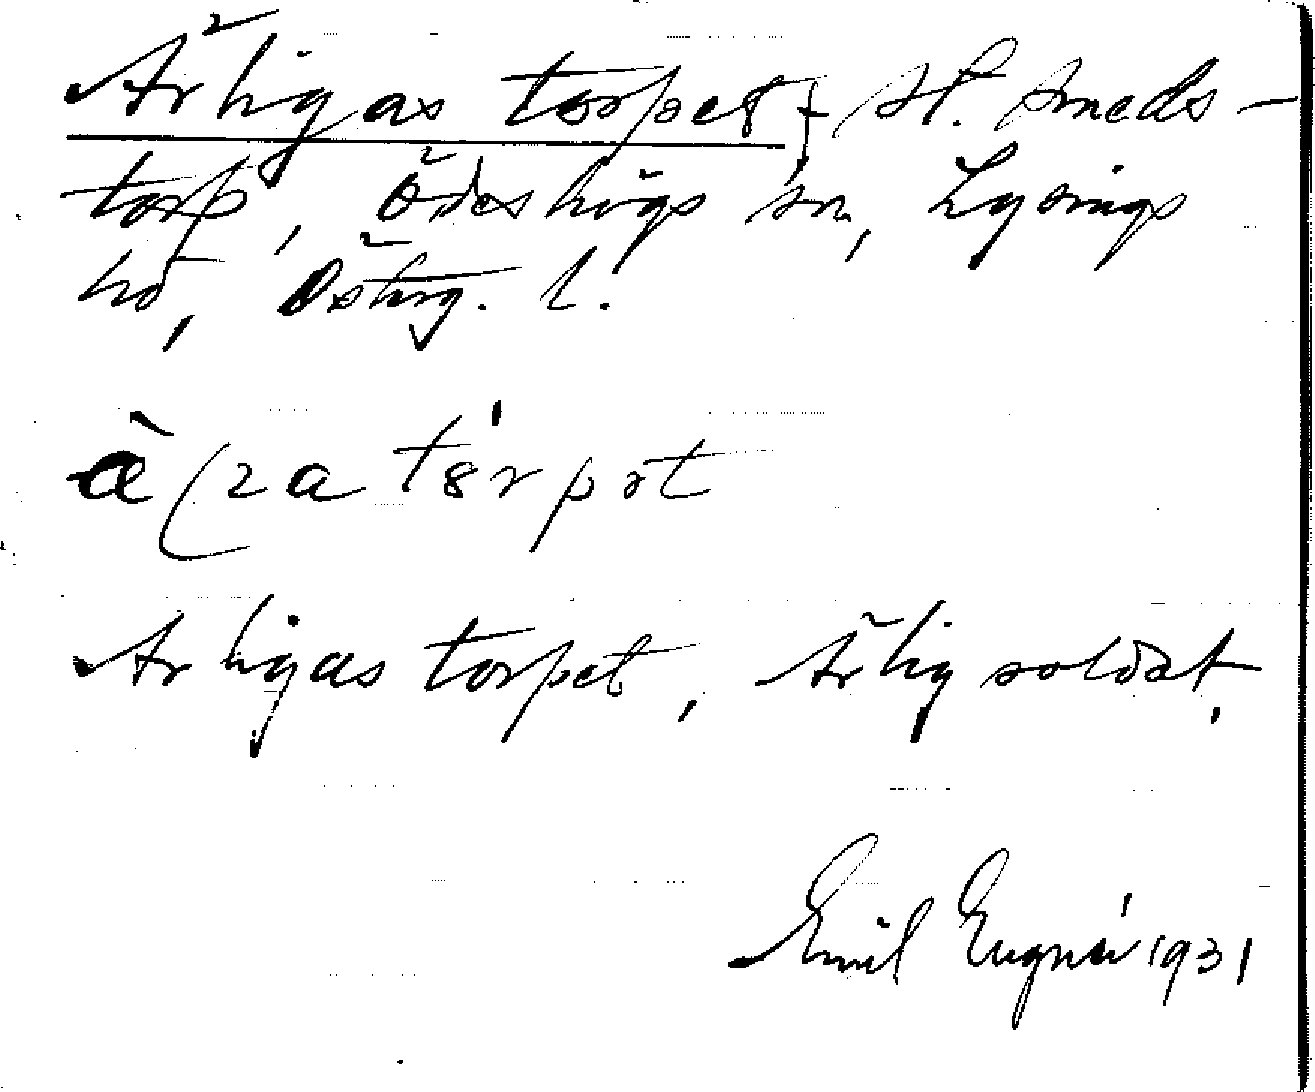 Ärligas torpet, St. Smeds-
torp, Ödeshögs sn, Lysings
hd, Östrg. l.
Ärligas torpet, Ärlig soldat.
Emil Eugnér 1931